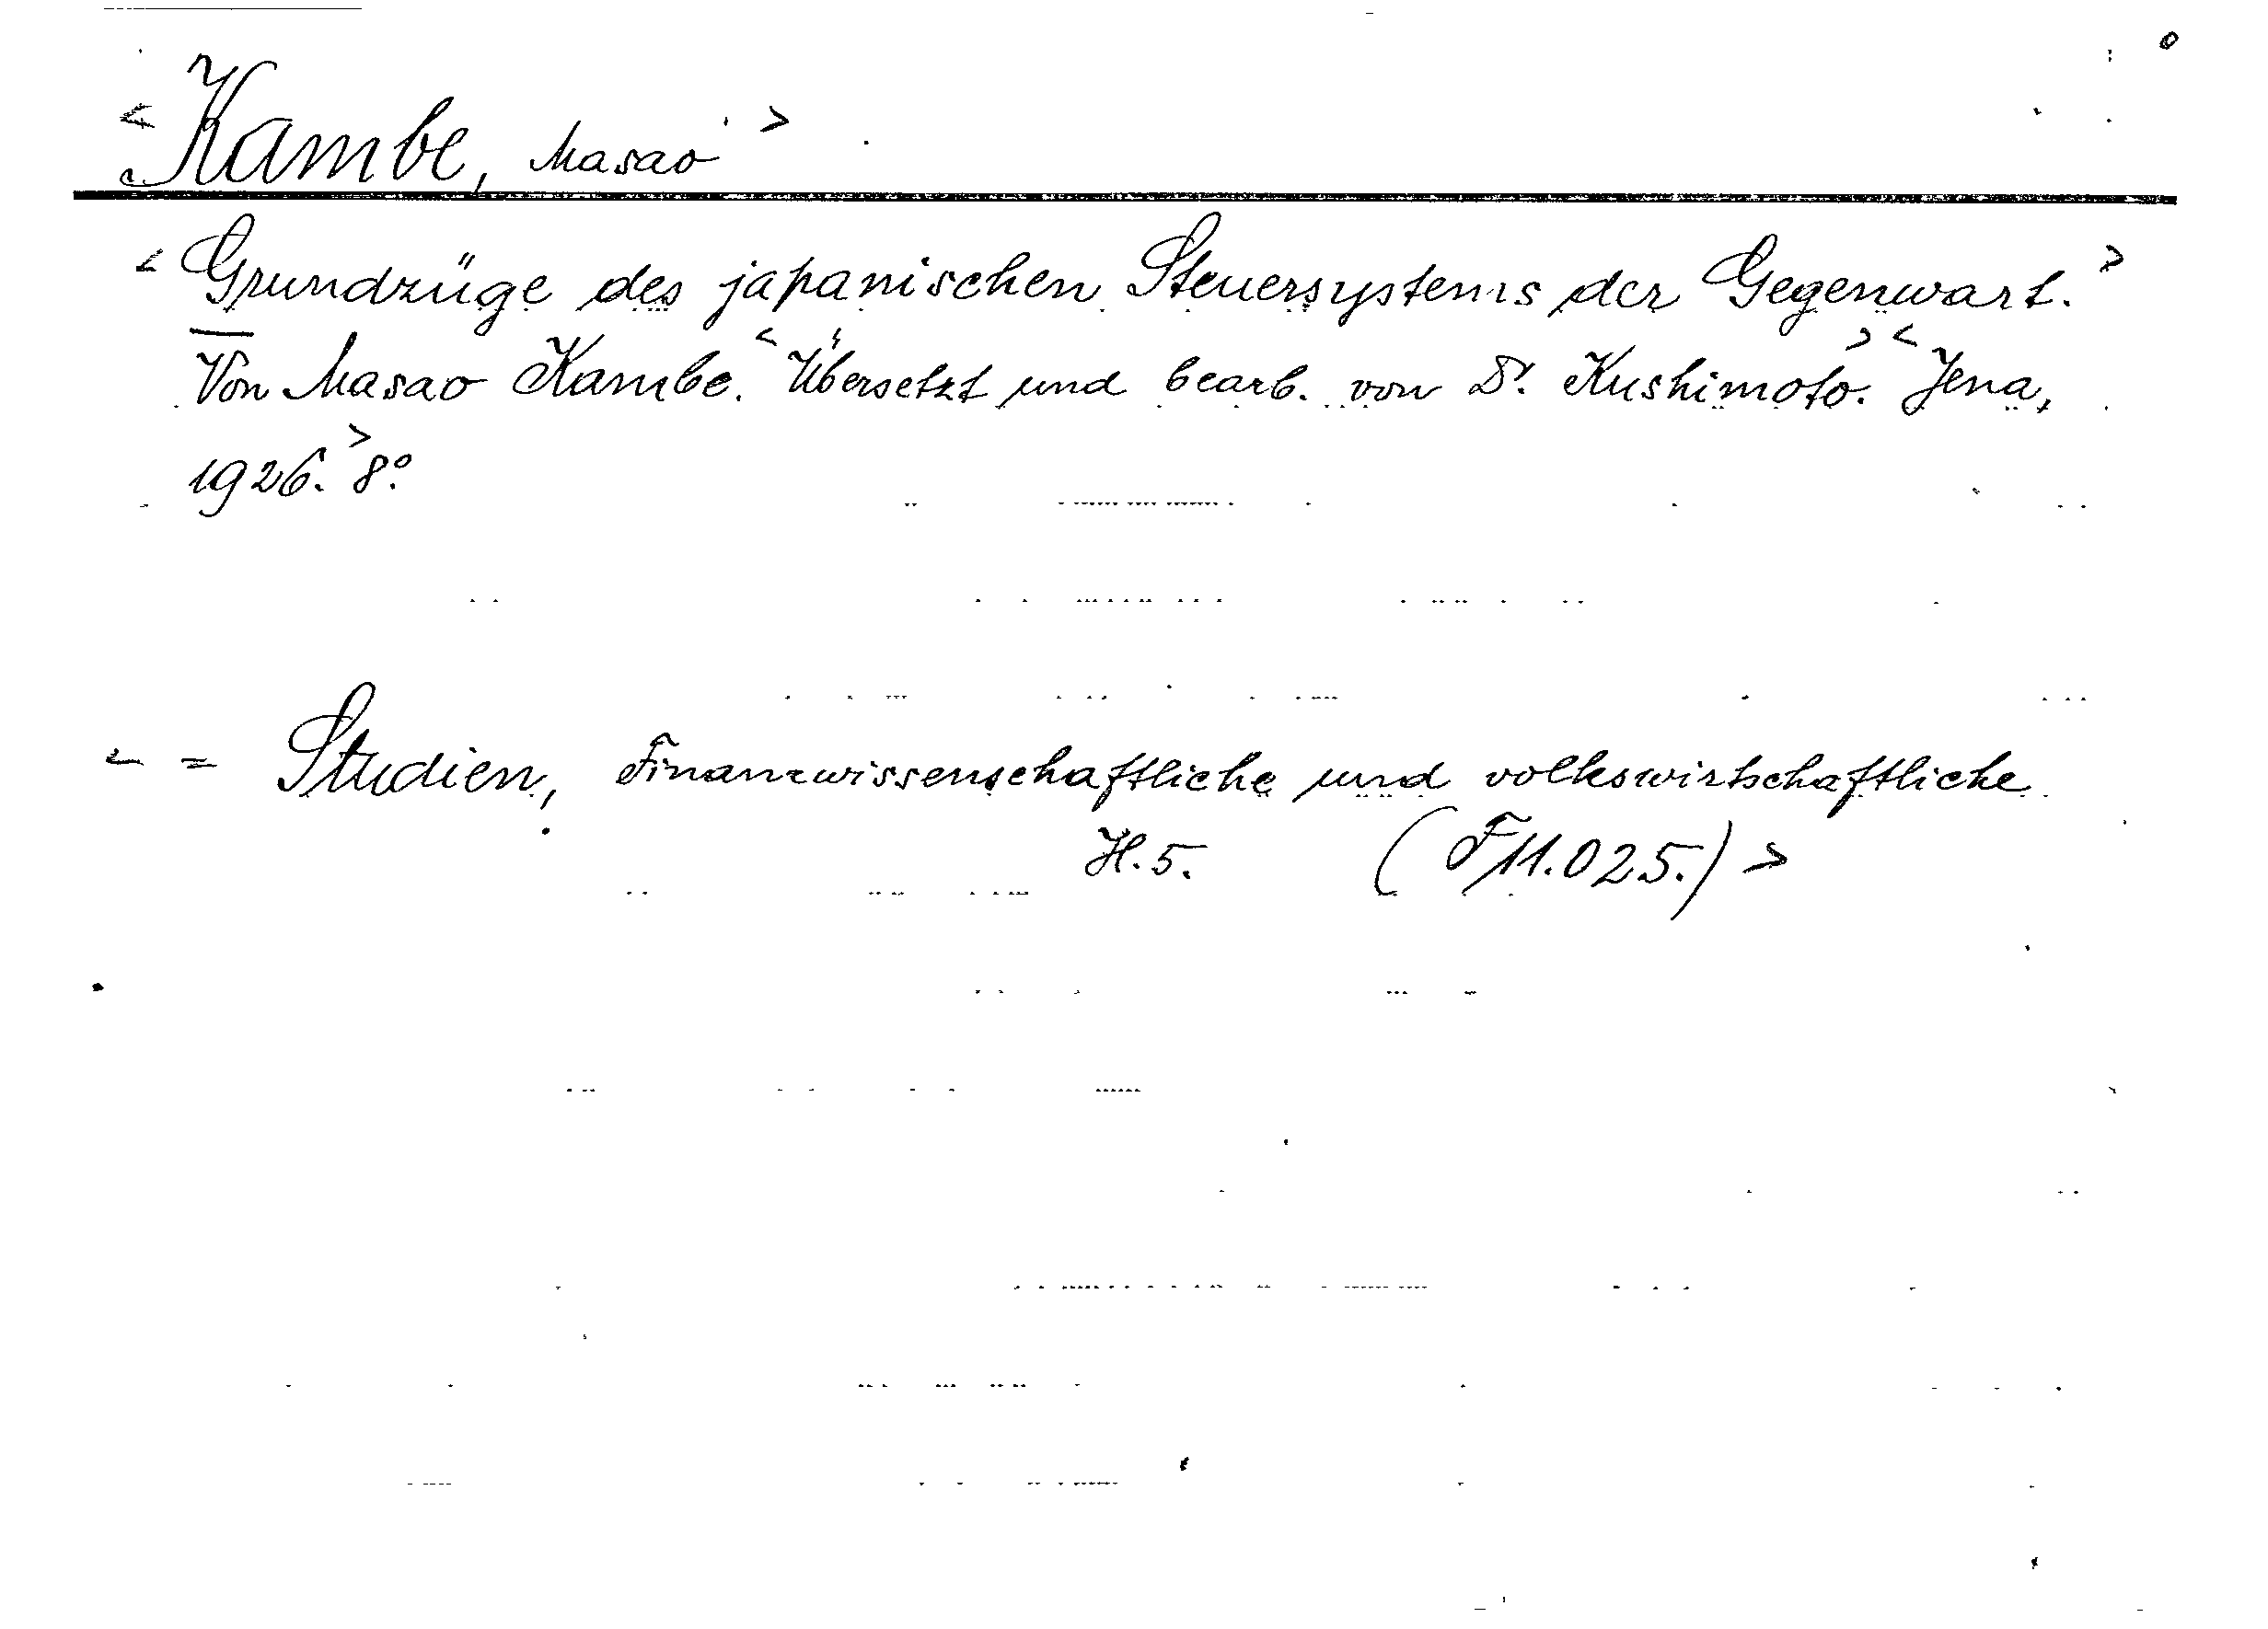 < Kambe, Masao >
< Grundzüge des japanischen Steuersystems der Gegenwart. >
Von Masao Kambe. < Übersetzt und bearb. von Dr. Kushimoto. > < Jena,
1926. > 8°.
< = Studien, Finanzwissenschaftliche und volkswirtschaftliche
H. 5. (F 11.025.) >